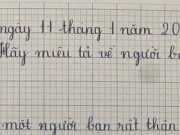 ngày 11 tháng 1 năm 20
Hãy miêu tả về người b
một người bạn rất thân